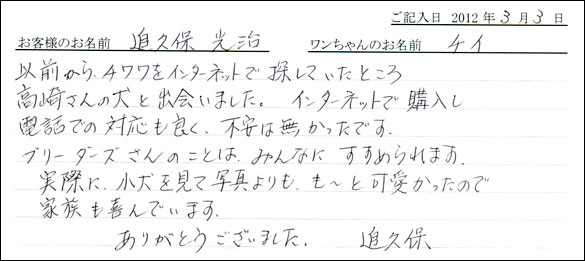 ご記入日 2012年3月3日
お客様のお名前 追久保 光治 ワンちゃんのお名前 ケイ
以前から、チワワをインターネットで探していたところ
高崎さんの犬と出会いました。 インターネットで購入し
電話での対応も良く、不安は無かったです。
ブリーダーズさんのことは、みんなにすすめられます。
実際に、小犬を見て写真よりも、も〜と可愛かったので
家族も喜んでいます。
ありがとうございました。 追久保